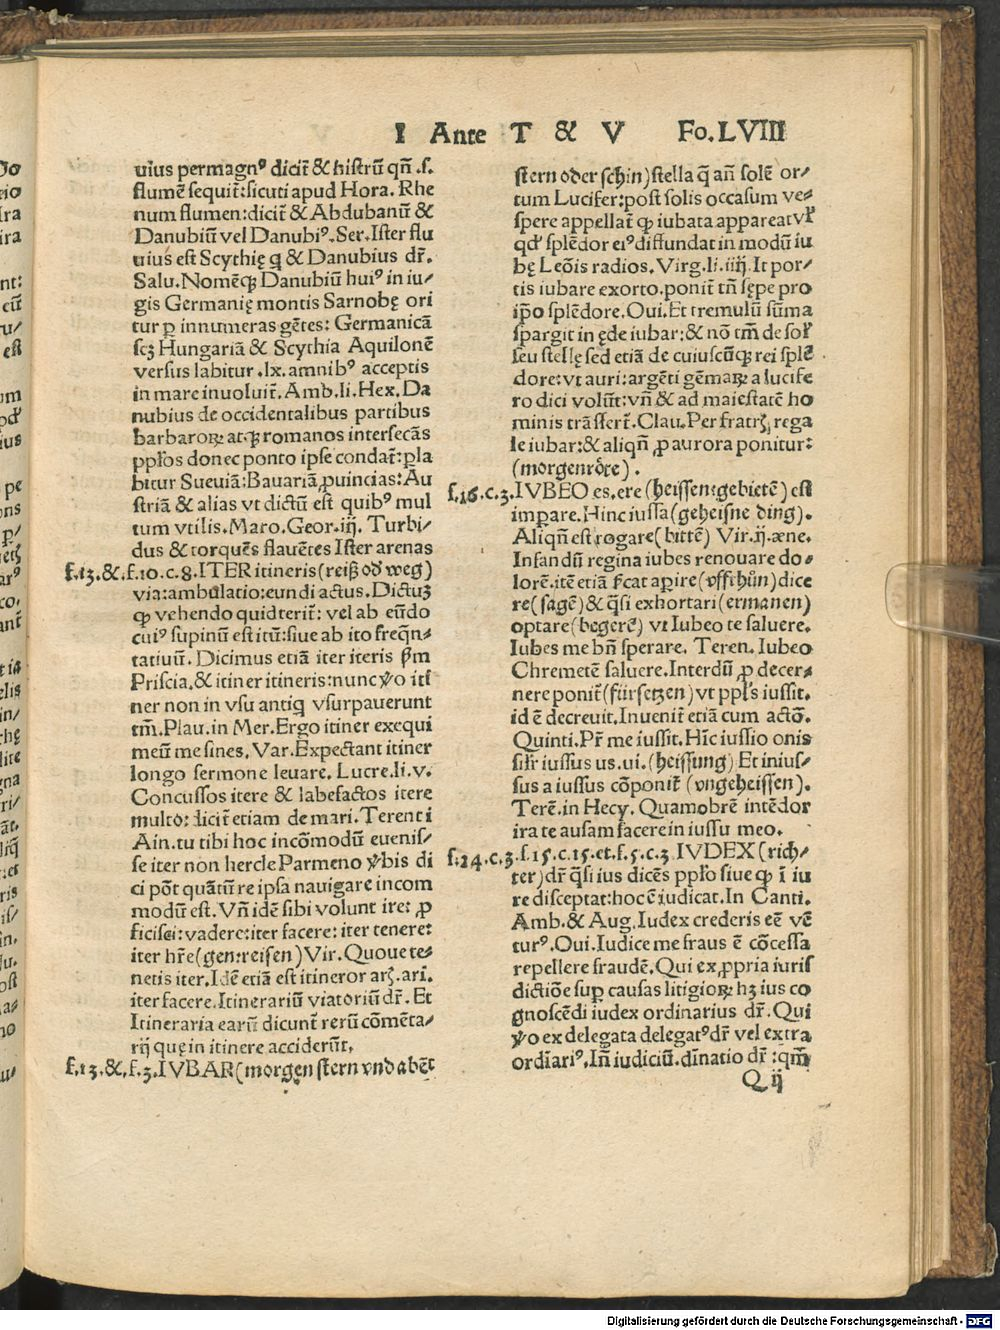 I Ante T & V Fo.LVIII
uius permagnꝰ dicit̃ & histrũ qñ .s.
flumẽ sequit̃:sicuti apud Hora. Rhe
num flumen:dicit̃ & Abdubanũ &
Danubiũ vel Danubiꝰ.Ser.Ister flu
uius est Scythię q̃ & Danubius dr̃.
Salu.Nomẽq̃ꝫ Danubiũ huiꝰ in iu/
gis Germanię montis Sarnobę ori
tur ꝑ innumeras gẽtes: Germanicã
scꝫ Hungariã & Scythia Aquilonẽ
versus labitur .lx.amnibꝰ acceptis
in mare inuoluit̃.Amb.li.Hex.Da
nubius de occidentalibus partibus
barbaroꝝ atqꝫ romanos intersecãs
pplos donec ponto ipse condat̃:pla
bitur Sueuiã:Bauariã ꝓuincias:Au
striã & alias vt dictũ est quibꝰ mul
tum vtilis.Maro.Geor.iij. Turbi/
dus & torquẽs flauẽtes Ister arenas
f.13.&.f.10.c.8.ITER itineris(reiß od weg)
via:ambulatio:eundi actus.Dictuꝫ
ꝙ vehendo quid terit̃: vel ab eũdo
cuiꝰ supinũ est itũ:siue ab ito freq̃n/
tatiuũ. Dicimus etiã iter iteris ẜm
Priscia.& itiner itineris:nunc ỹo iti
ner non in vsu antiq̃ vsurpauerunt
tm̃.Plau.in Mer.Ergo itiner exequi
meũ me sines, Var.Expectant itiner
longo sermone leuare. Lucre.li.v.
Concussos itere & labefactos itere
multo: dicit̃ etiam de mari. Terenti
Ain.tu tibi hoc incõmodũ euenis/
se iter non hercle Parmeno ỹbis di
ci põt quãtũ re ipsa nauigare incom
modũ est. Vñ idẽ sibi volunt ire: ꝓ
ficisci:vadere:iter facere: iter tenere:
iter hr̃e(gen:reisen)Vir.Quoue te/
netis iter.Idẽ etiã est itineror arꝫ.ari.
iter facere.Itinerariũ viatoriũ dr̃. Et
Itineraria earũ dicunt̃ rerũ cõmẽta/
rij quę in itinere acciderũt.
f.13.&.f.3.IVBAR(morgen stern vnd abẽt
stern oder schin)stella q̃ añ solẽ or/
tum Lucifer:post solis occasum ve/
spere appellat̃ ꝙ iubata appareat vl̃
qd' splẽdor eiꝰ diffundat in modũ iu
bę Leõis radios.Virg.li.iiij.It por/
tis iubare exorto.ponit̃ tñ sępe pro
ip̃o splẽdore.Oui.Et tremulũ sũma
spargit in ęde iubar:& nõ tm̃ de sol̃
seu stellę sed etiã de cuiuscũqꝫ rei splẽ
dore:vt auri:argẽti gẽmaꝝ a lucife
ro dici volũt:vñ & ad maiestatẽ ho
minis trãsfert̃.Clau.Per fratꝝ rega
le iubar:& aliqñ ꝓ aurora ponitur:
(morgenröte).
f.16.c.3.IVBEO es.ere(heissen:gebietẽ)est
impare.Hinc iussa(geheisne ding).
Aliqñ est rogare(bittẽ) Vir.ij.æne.
Infandũ regina iubes renouare do/
lorẽ.itẽ etiã ꝑcat aꝑire(vffthůn)dice
re(sagẽ)& q̃si exhortari(ermanen)
optare(begerẽ) vt Iubeo te saluere.
Iubes me bñ sperare. Teren.Iubeo
Chremetẽ saluere.Interdũ ꝓ decer/
nere ponit̃(fürsetzen)vt ppl̃s iussit.
id ẽ decreuit.Inuenit̃ etiã cum actõ.
Quinti.Pr̃ me iussit.Hĩc iussio onis
sil̃r iussus us.ui.(heissung)Et inius/
sus a iussus cõponit̃ (vngeheissen).
Terẽ.in Hecy. Quamobrẽ intẽdor
ira te ausam facere in iussu meo.
f.24.c.3.f.15.c.15.et.f.5.c.3 IVDEX(rich/
ter)dr̃ q̃si ius dicẽs pplo siue ꝙ ĩ iu
re disceptat:hoc ẽ iudicat.In Canti.
Amb.& Aug.Iudex crederis eẽ vẽ
turꝰ.Oui.Iudice me fraus ẽ cõcessa
repellere fraudẽ.Qui ex ꝓpria iuris
dictiõe suꝑ causas litigioꝝ hꝫ ius co
gnoscẽdi iudex ordinarius dr̃. Qui
ỹo ex delegata delegatꝰ dr̃ vel extra
ordĩariꝰ.Iñ iudiciũ.dĩnatio dr̃ :qm̃
Q ij
Digitalisierung gefördert durch die Deutsche Forschungsgemeinschaft - DFG